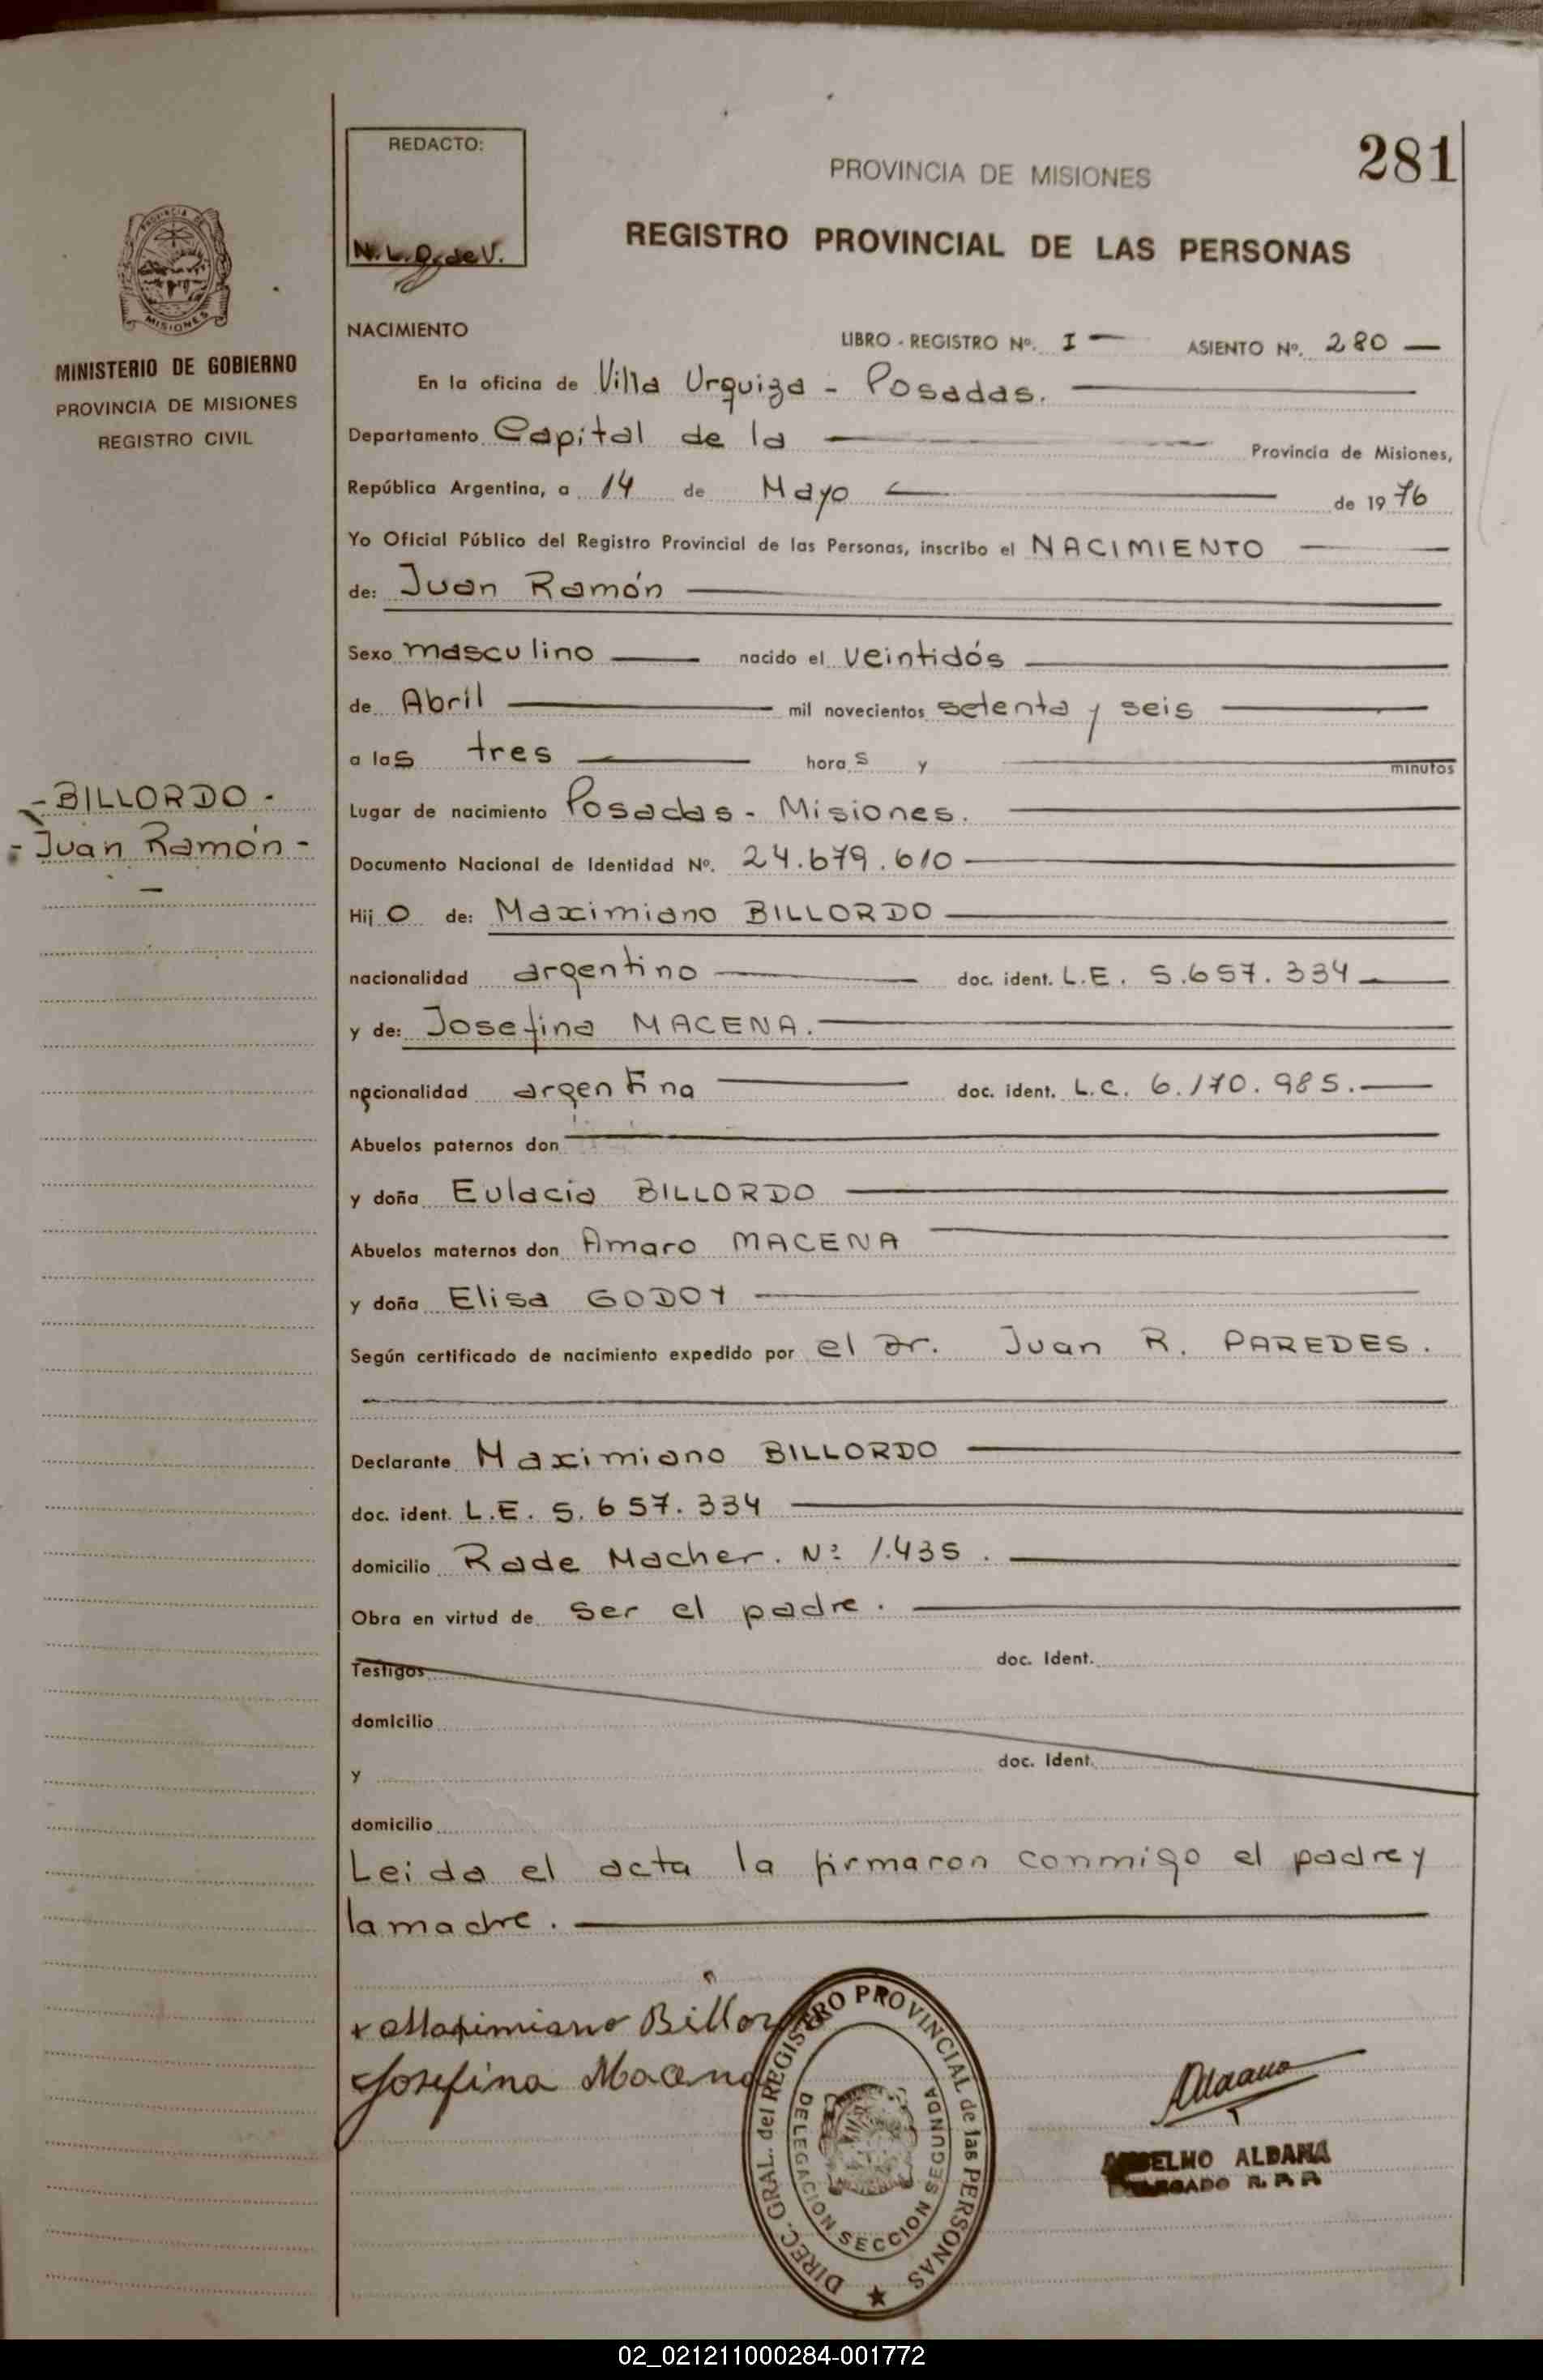 REDACTO:
N. L. D. de V.
281
PROVINCIA DE MISIONES
REGISTRO PROVINCIAL DE LAS PERSONAS
PROVINCIA DE
MISIONES
MINISTERIO DE GOBIERNO
PROVINCIA DE MISIONES
REGISTRO CIVIL
NACIMIENTO LIBRO - REGISTRO Nº. I — ASIENTO Nº. 280 —
En la oficina de Villa Urquiza - Posadas.
Departamento Capital de la — Provincia de Misiones,
República Argentina, a 14 de Mayo — de 1976
Yo Oficial Público del Registro Provincial de las Personas, inscribo el NACIMIENTO —
de: Juan Ramón —
Sexo masculino — nacido el veintidós —
de Abril — mil novecientos setenta y seis —
a las tres — horas y — minutos
- BILLORDO -
- Juan Ramón -
—
Lugar de nacimiento Posadas - Misiones. —
Documento Nacional de Identidad Nº. 24.679.610 —
Hijo de: Maximiano BILLORDO —
nacionalidad argentino — doc. ident. L.E. 5.657.334 —
y de: Josefina MACENA. —
nacionalidad argentina — doc. ident. L.C. 6.170.985. —
Abuelos paternos don —
y doña Eulacia BILLORDO —
Abuelos maternos don Amaro MACENA —
y doña Elisa GODOY —
Según certificado de nacimiento expedido por el Dr. Juan R. PAREDES.
Declarante Maximiano BILLORDO —
doc. ident. L.E. 5.657.334 —
domicilio Rade Macher. Nº 1.435. —
Obra en virtud de ser el padre. —
Testigos doc. Ident.
domicilio
y doc. Ident.
domicilio
Leida el acta la firmaron conmigo el padre y
la madre. —
x Maximiano Billor
Josefina Macena
DIREC. GRAL. del REGISTRO PROVINCIAL de las PERSONAS
DELEGACION SECCION SEGUNDA
Aldana
ANSELMO ALDANA
DELEGADO R. P. P.
02_021211000284-001772